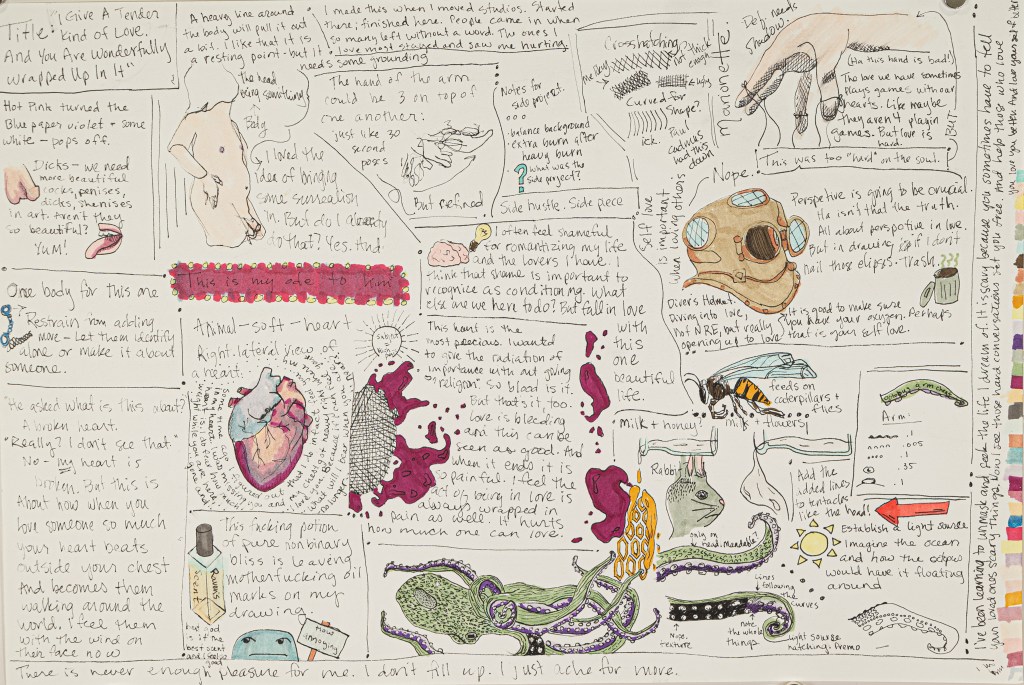 Title: "I Give A Tender
Kind of Love.
And You Are Wonderfully
Wrapped Up In It"
A heavy line around
the body will pull it out
a bit. I like that it is
a resting point - but it
needs some grounding
I made this when I moved studios. Started
there; finished here. People came in when
so many left without a word. The ones I
love most stayed and saw me hurting
Hot Pink turned the
Blue paper violet + some
white - pops off.
Dicks - we need
more beautiful
cocks, penises,
dicks, shenises
in art. Aren't they
so beautiful?
Yum!
The head
being something
Body
I loved the
idea of bringing
some surrealism
in. But do I already
do that? Yes. And
The hand of the arm
could be 3 on top of
one another:
just like 30
second
poses
But refined
Notes for
side project.
- balance background
- extra burn after
heavy burn
? what was the
side project?
Side hustle. Side piece
Crosshatching
not thick
enough
ugly
Curved for
shape?
ick.
Paul
Cadmus
had this
down
Marionette
Def. needs
shadow
(Ha this hand is bad!)
The love we have sometimes
plays games with our
hearts. Like maybe
they aren't playin
games. But love is
hard.
This was too "hard" on the soul.
Nope.
(BUT
Self love
is important
when loving others
Perspective is going to be crucial.
Ha isn't that the truth.
All about perspective in love.
But in drawing if I don't
nail those elipses - Trash.???
Divers Helmet.
Diving into love,
not NRE, but really
opening up to love
It is good to make sure
you have your oxygen. Perhaps
that is your self love.
One body for this one
Restrain from adding
more - Let them identify
alone or make it about
someone.
This is my ode to him
I often feel shameful
for romantizing my life
and the lovers I have. I
think that shame is important to
recognize as conditioning. What
else are we here to do? But fall in love
with
this
one
beautiful
life.
"He asked what is this about?
A broken heart.
"Really? I don't see that."
No - my heart is
But this is
about how when you
love someone so much
your heart beats
outside your chest
And becomes them
walking around the
world. I feel them
with the wind on
their face now
Animal - soft - heart
Right lateral view of
a heart.
This heart is the
most precious. I wanted
to give the radiation of
importance with out giving
"religion". So blood is it.
But that is it, too.
Love is bleeding
and this can be
seen as good. And
when it ends it is
so painful. I feel the
act of being in love is
always wrapped in
pain as well. It hurts
how much one can love.
feeds on
caderpillars +
flies
Milk + honey?
Milk + flowers!
Rabbit
only on
head. Mandable
Add the
added lines
to attachs
like the head!
Arm!
.1
.005
.1
.35
.1
Establish a light sourse.
Imagine the ocean
and how the octopus
would have it floating
around
This fucking potion
of pure nonbinary
bliss is leaving
motherfucking oil
marks on my
drawing.
how
annoying
Lines
following the
curves
Nope.
texture
note
the whole
things
Light sourse
hatching. Premo
There is never enough pleasure for me. I don't fill up. I just ache for more.
I've been learning to unmask and seek the life I dream of. It is scary because you sometimes have to tell
your loved ones scary things. Now I see those hard conversations set you free. And help those who love
you love you better. And love yourself better